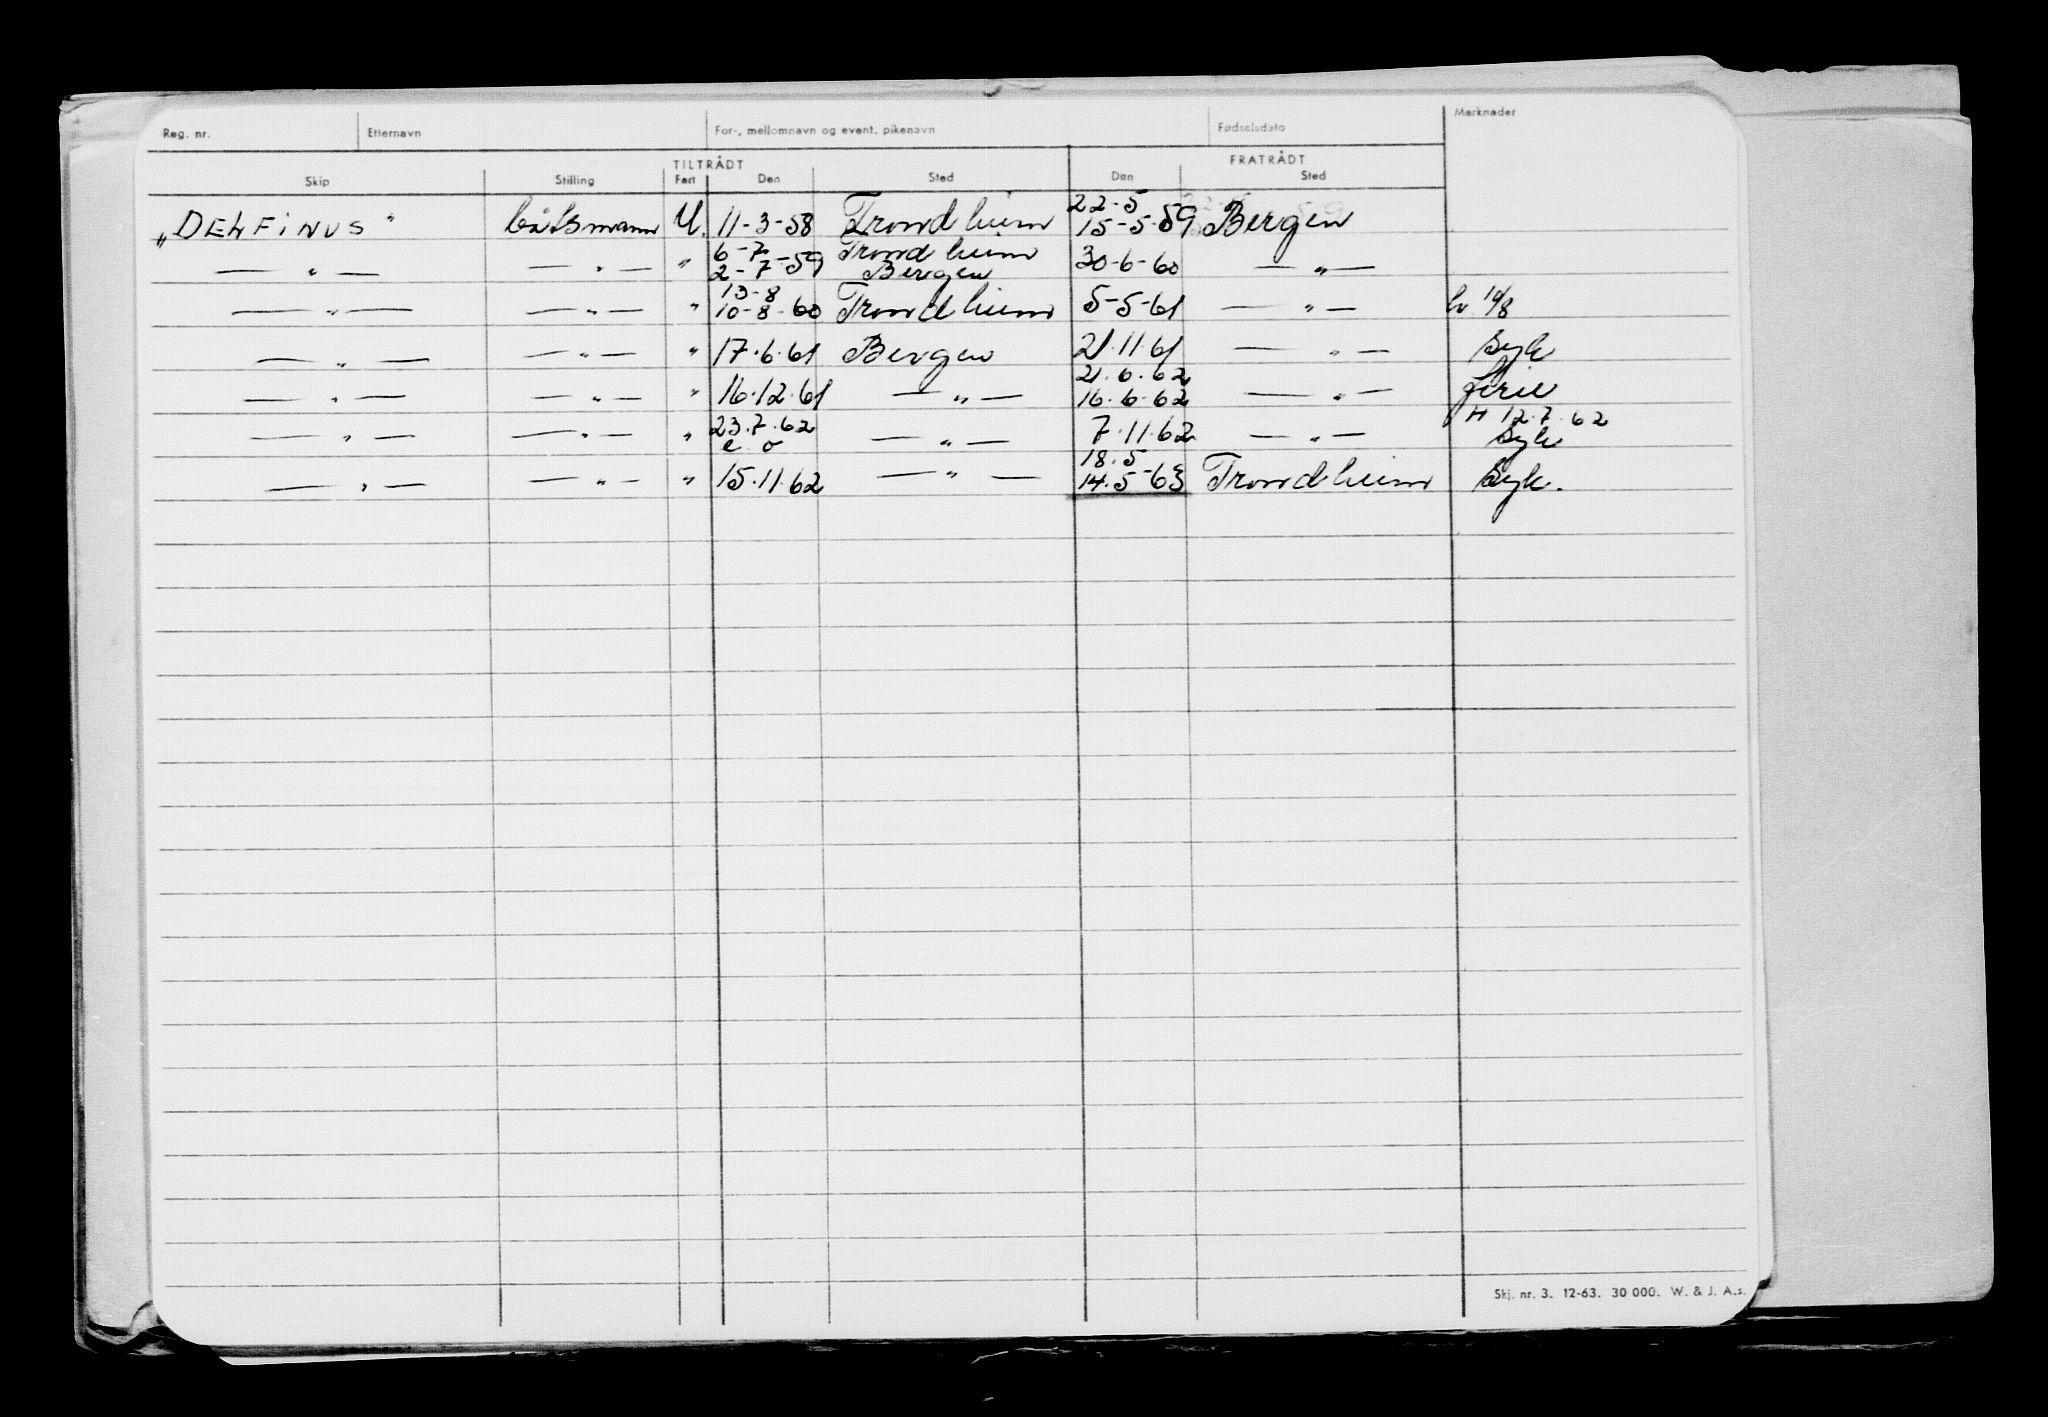 Reg. nr. Etternavn For-, mellomnavn og event. pikenavn Fødselsdato Merknader
TILTRÅDT FRATRÅDT
Skip Stilling Fart Den Sted Den Sted
22-5
„DELFINUS" båtsmann U. 11-3-58 Trondheim 15-5-59 Bergen
6-7 Trondheim
—"— —"— " 2-7-59 Bergen 30-6-60 —"—
13-8
—"— —"— " 10-8-60 Trondheim 5-5-61 —"— 10/8
—"— —"— " 17.6.61 Bergen 21.11.61 —"— Syk
21.6.62
—"— —"— " 16.12.61 —"— 16.6.62 —"— ferie
23.7.62 H 12.7.62
—"— —"— " e. o —"— 7.11.62 —"— Syk
18.5
—"— —"— " 15.11.62 —"— 14.5-63 Trondheim Syk.
Skj. nr. 3. 12-63. 30 000. W. & J. A.s.